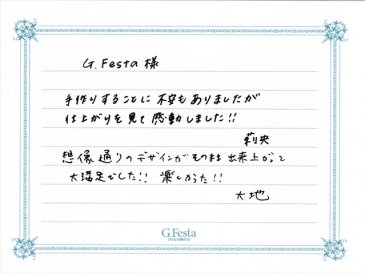 G.Festa 様
手作りすることに不安もありましたが
仕上がりを見て感動しました!!
莉央
想像通りのデザインがそのまま出来上がって
大満足でした!! 楽しかった!!
大地
G.Festa
DIAMOND